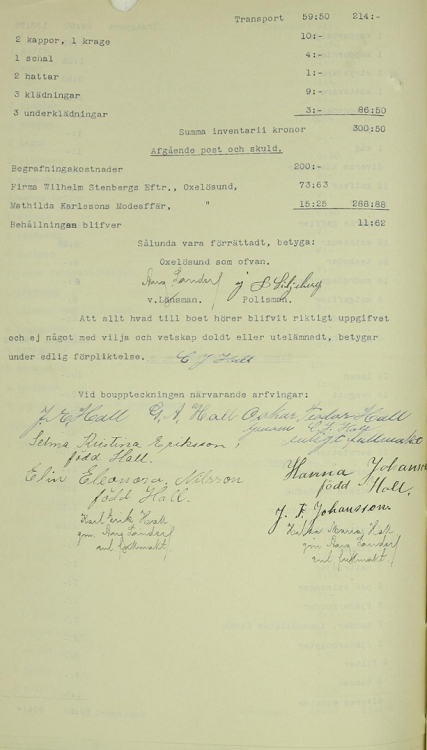 Transport 59:50 214:-
2 kappor, 1 krage 10:-
1 schal 4:-
2 hattar 1:-
3 klädningar 9:-
3 underklädningar 3:- 86:50
Summa inventarii kronor 300:50
Afgående post och skuld.
Begrafningskostnader 200:-
Firma Wilhelm Stenbergs Eftr., Oxelösund, 73:63
Mathilda Karlssons Modeaffär, " 15:25 288:88
Behållningen blifver 11:62
Sålunda vara förrättadt, betyga:
Oxelösund som ofvan.
Aug Landorf
v.Länsman. Polisman.
Att allt hvad till boet hörer blifvit riktigt uppgifvet
och ej något med vilja och vetskap doldt eller utelämnadt, betygar
under edlig förpliktelse. C J Hall
Vid bouppteckningen närvarande arfvingar:
J. A. Hall G. A. Hall Oskar Teodor Hall
genom C. J. Hall
Selma Kristina Eriksson enligt fullmakt
född Hall.
Elin Eleonora Nilsson Hanna Johansson
född Hall. född Hall.
J. F. Johansson
Karl Erik Hall Maria Hall
gm. Aug Landorf gm Aug Landorf
enl fullmakt enl fullmakt.